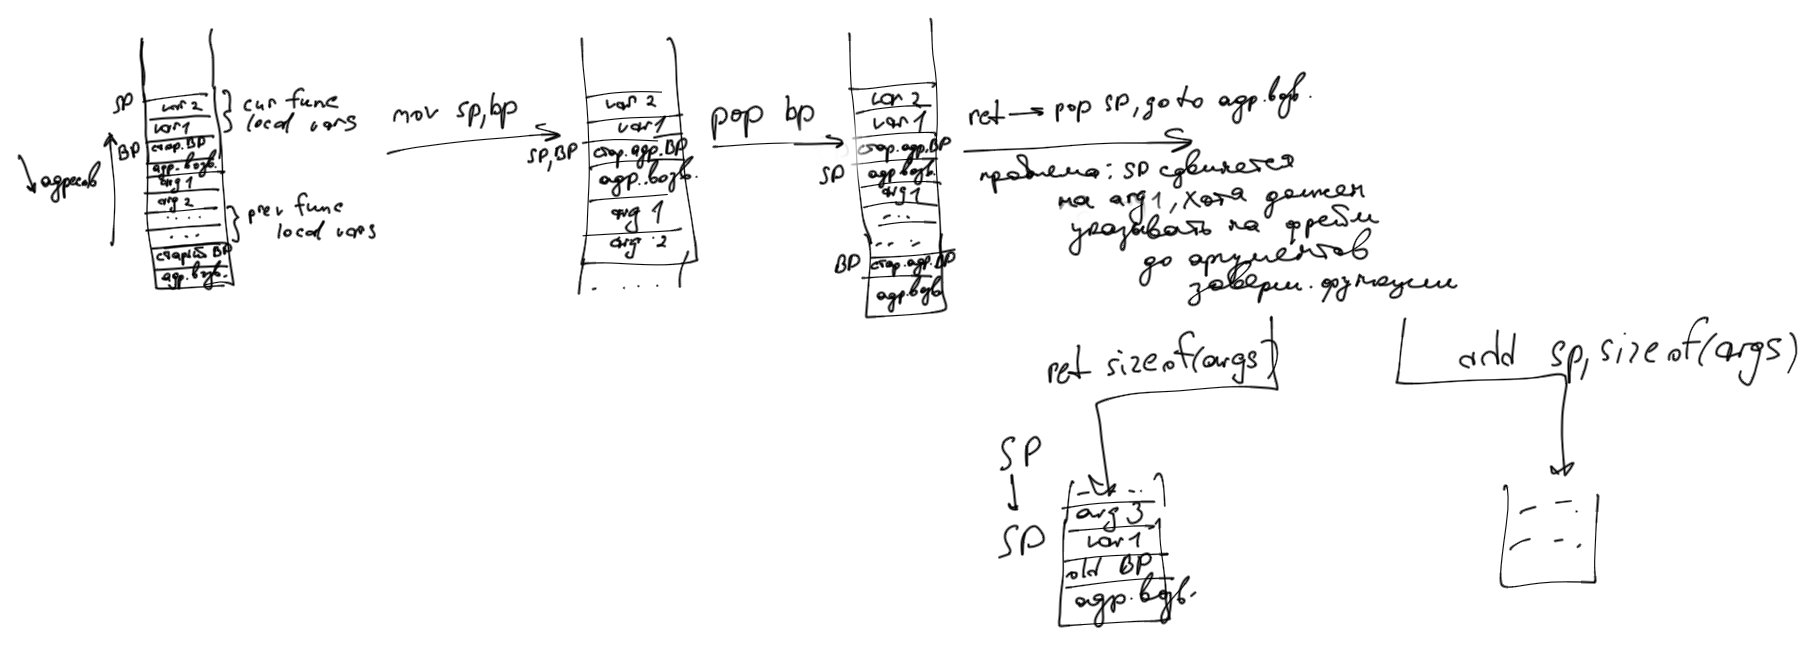 SP
var 2
var 1
cur func
local vars
BP
стар.BP
адр.возв.
адресов
arg 1
arg 2
....
...
prev func
local vars
старый BP
адр.возв.
mov sp,bp
var 2
var 1
SP,BP
стар.адр.BP
адр.возв.
arg 1
arg 2
. . . .
pop bp
var 2
var 1
стар.адр.BP
SP
адр.возв.
arg 1
...
....
BP
стар.адр.BP
адр.возв
ret → pop SP, goto адр.возв.
проблема: SP сдвигается
на arg1, хотя должен
указывать на фрейм
до аргументов
заверш. функции
ret sizeof(args)
add sp, sizeof(args)
SP
SP
arg 3
var 1
old BP
адр.возв.